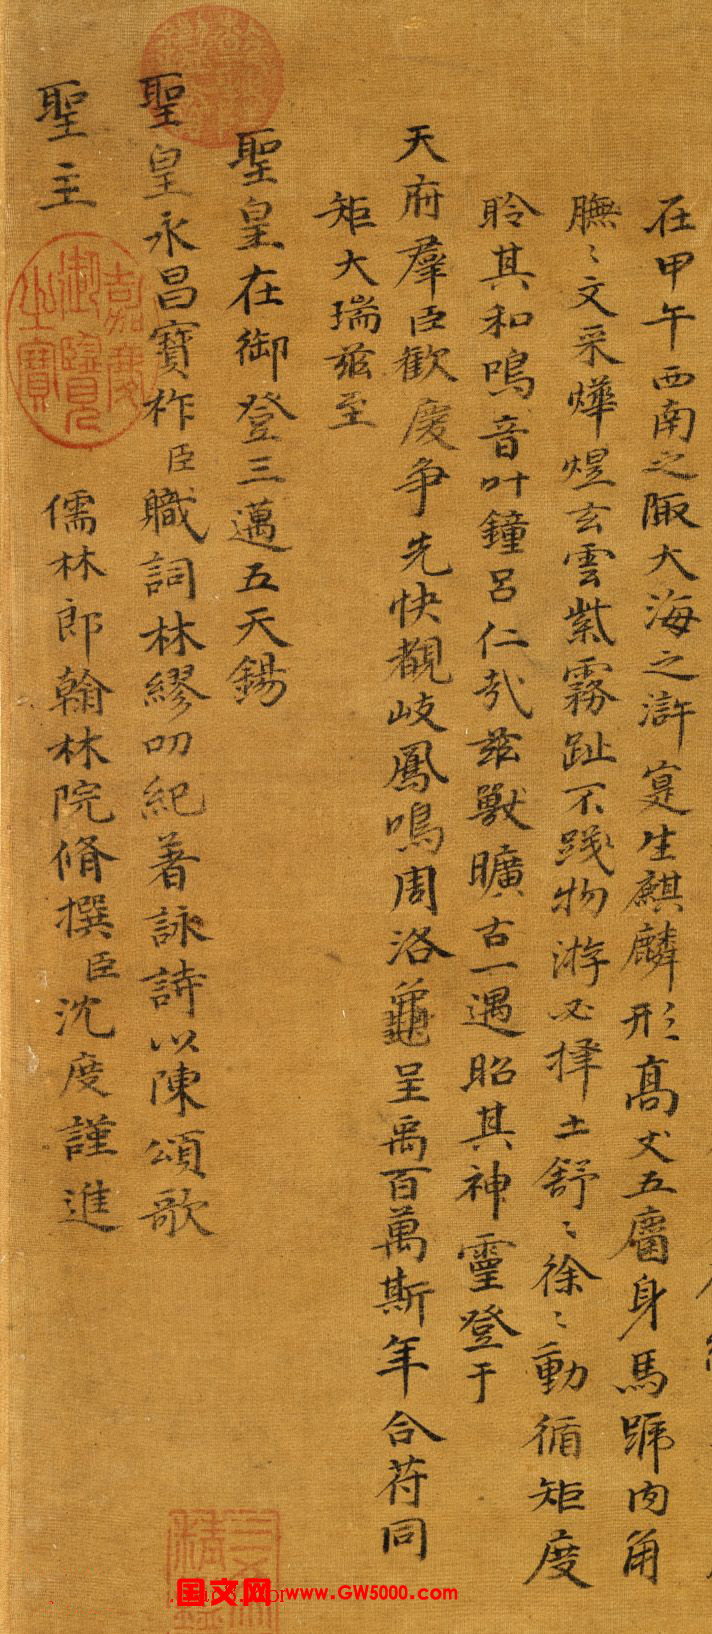 在甲午西南之陬大海之滸寔生麒麟形高丈五麕身馬蹏肉角
膴〻文采燁煜玄雲紫霧趾不踐物游必擇土舒〻徐〻動循矩度
聆其和鳴音叶鐘呂仁哉茲獸曠古一遇昭其神靈登于
天府羣臣歡慶争先快覩岐鳳鳴周洛龜呈禹百萬斯年合苻同
矩大瑞茲至
聖皇在御登三邁五天錫
聖皇永昌寶祚臣職詞林繆叨紀著詠詩以陳頌歌
聖主
儒林郎翰林院脩撰臣沈度謹進
嘉慶御覽之寶
国文网 www.GW5000.com